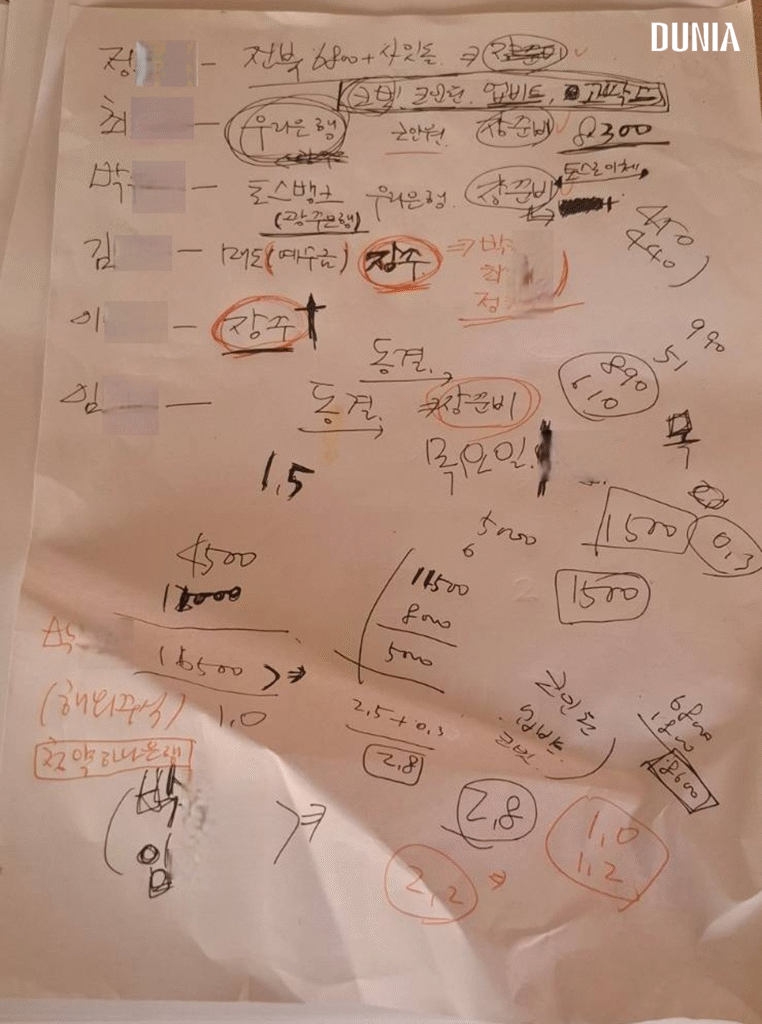 DUNIA
정 - 전북 6800 + 사잇돌 ⇒ 장준비
코빗, 코인원, 업비트, 고팍스
최 - 우리은행 코인원 장준비 8300
박 - 토스뱅크 우리은행 장준비 토스로이체
(광주은행)
450
440)
김 - 매도(예수금) 장주 ⇒ 박
최
정
이 - 장주
동결.
990
51
890
610
임 - 동결. ⇒ 장준비
목요일. 목
1,5
1500 0,3
5000
6
4500
11500
1500
8000
16500 ⇒ 5000
(해외주식) 1,0
2,5+0,3
2,8
코인원
업비트
코빗
6800
1800
8600
청약하나은행
박
임
⇒
2,8
1,0
1,2
2,2 ⇒